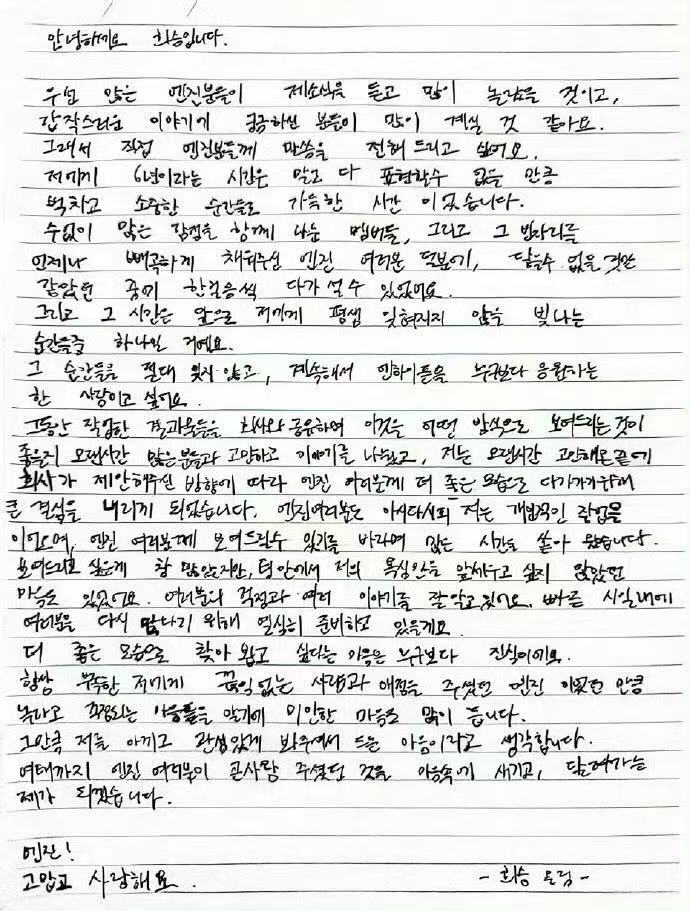 안녕하세요 희승입니다.
우선 많은 엔진분들이 제소식을 듣고 많이 놀랐을 것이고,
갑작스러운 이야기에 궁금하신 분들이 많이 계실 것 같아요.
그래서 직접 엔진분들께 말씀을 전해 드리고 싶어요.
저에게 6년이라는 시간은 말로 다 표현할수 없을 만큼
벅차고 소중한 순간들로 가득한 시간 이었습니다.
수없이 많은 감정을 함께 나눈 멤버들, 그리고 그 빈자리를
언제나 빼곡하게 채워주신 엔진 여러분 덕분에, 닿을수 없을 것만
같았던 꿈에 한걸음씩 다가 설 수 있었어요.
그리고 그 시간은 앞으로 저에게 평생 잊혀지지 않을 빛나는
순간들중 하나일 거에요.
그 순간들을 절대 잊지 않고, 계속해서 엔하이픈을 누구보다 응원하는
한 사람이고 싶어요.
그동안 작업한 결과물들을 회사와 공유하며 이것을 어떤 방식으로 보여드리는것이
좋을지 오랜시간 많은분들과 고민하고 이야기를 나눴고, 저는 오랜시간 고민해온끝에
회사가 제안해주신 방향에 따라 엔진 여러분께 더 좋은 모습으로 다가가기위해
큰 결심을 내리게 되었습니다. 엔진여러분도 아시다시피 저는 개인적인 작업을
이어오며, 엔진 여러분께 보여드릴수 있기를 바라며 많은 시간을 쏟아 왔습니다.
보여드리고 싶은게 참 많았지만, 팀 안에서 저의 욕심만을 앞세우고 싶지 않았던
마음도 있었어요. 여러분의 걱정과 여러 이야기를 잘 알고있어요. 빠른 시일내에
여러분을 다시 만나기 위해 열심히 준비하고 있을게요.
더 좋은 모습으로 찾아 뵙고 싶다는 마음은 누구보다 진심이에요.
항상 부족한 저에게 끊임없는 사랑과 애정을 주셨던 엔진 이었던 만큼
놀라고 걱정되는 마음들을 알기에 미안한 마음도 많이 듭니다.
그만큼 저를 아끼고 관심있게 봐주셔서 드는 마음이라고 생각합니다.
여태까지 엔진 여러분이 큰사랑 주셨던 것을 마음속에 새기고, 달려가는
제가 되겠습니다.
엔진!
고맙고 사랑해요.
- 희승 드림 -